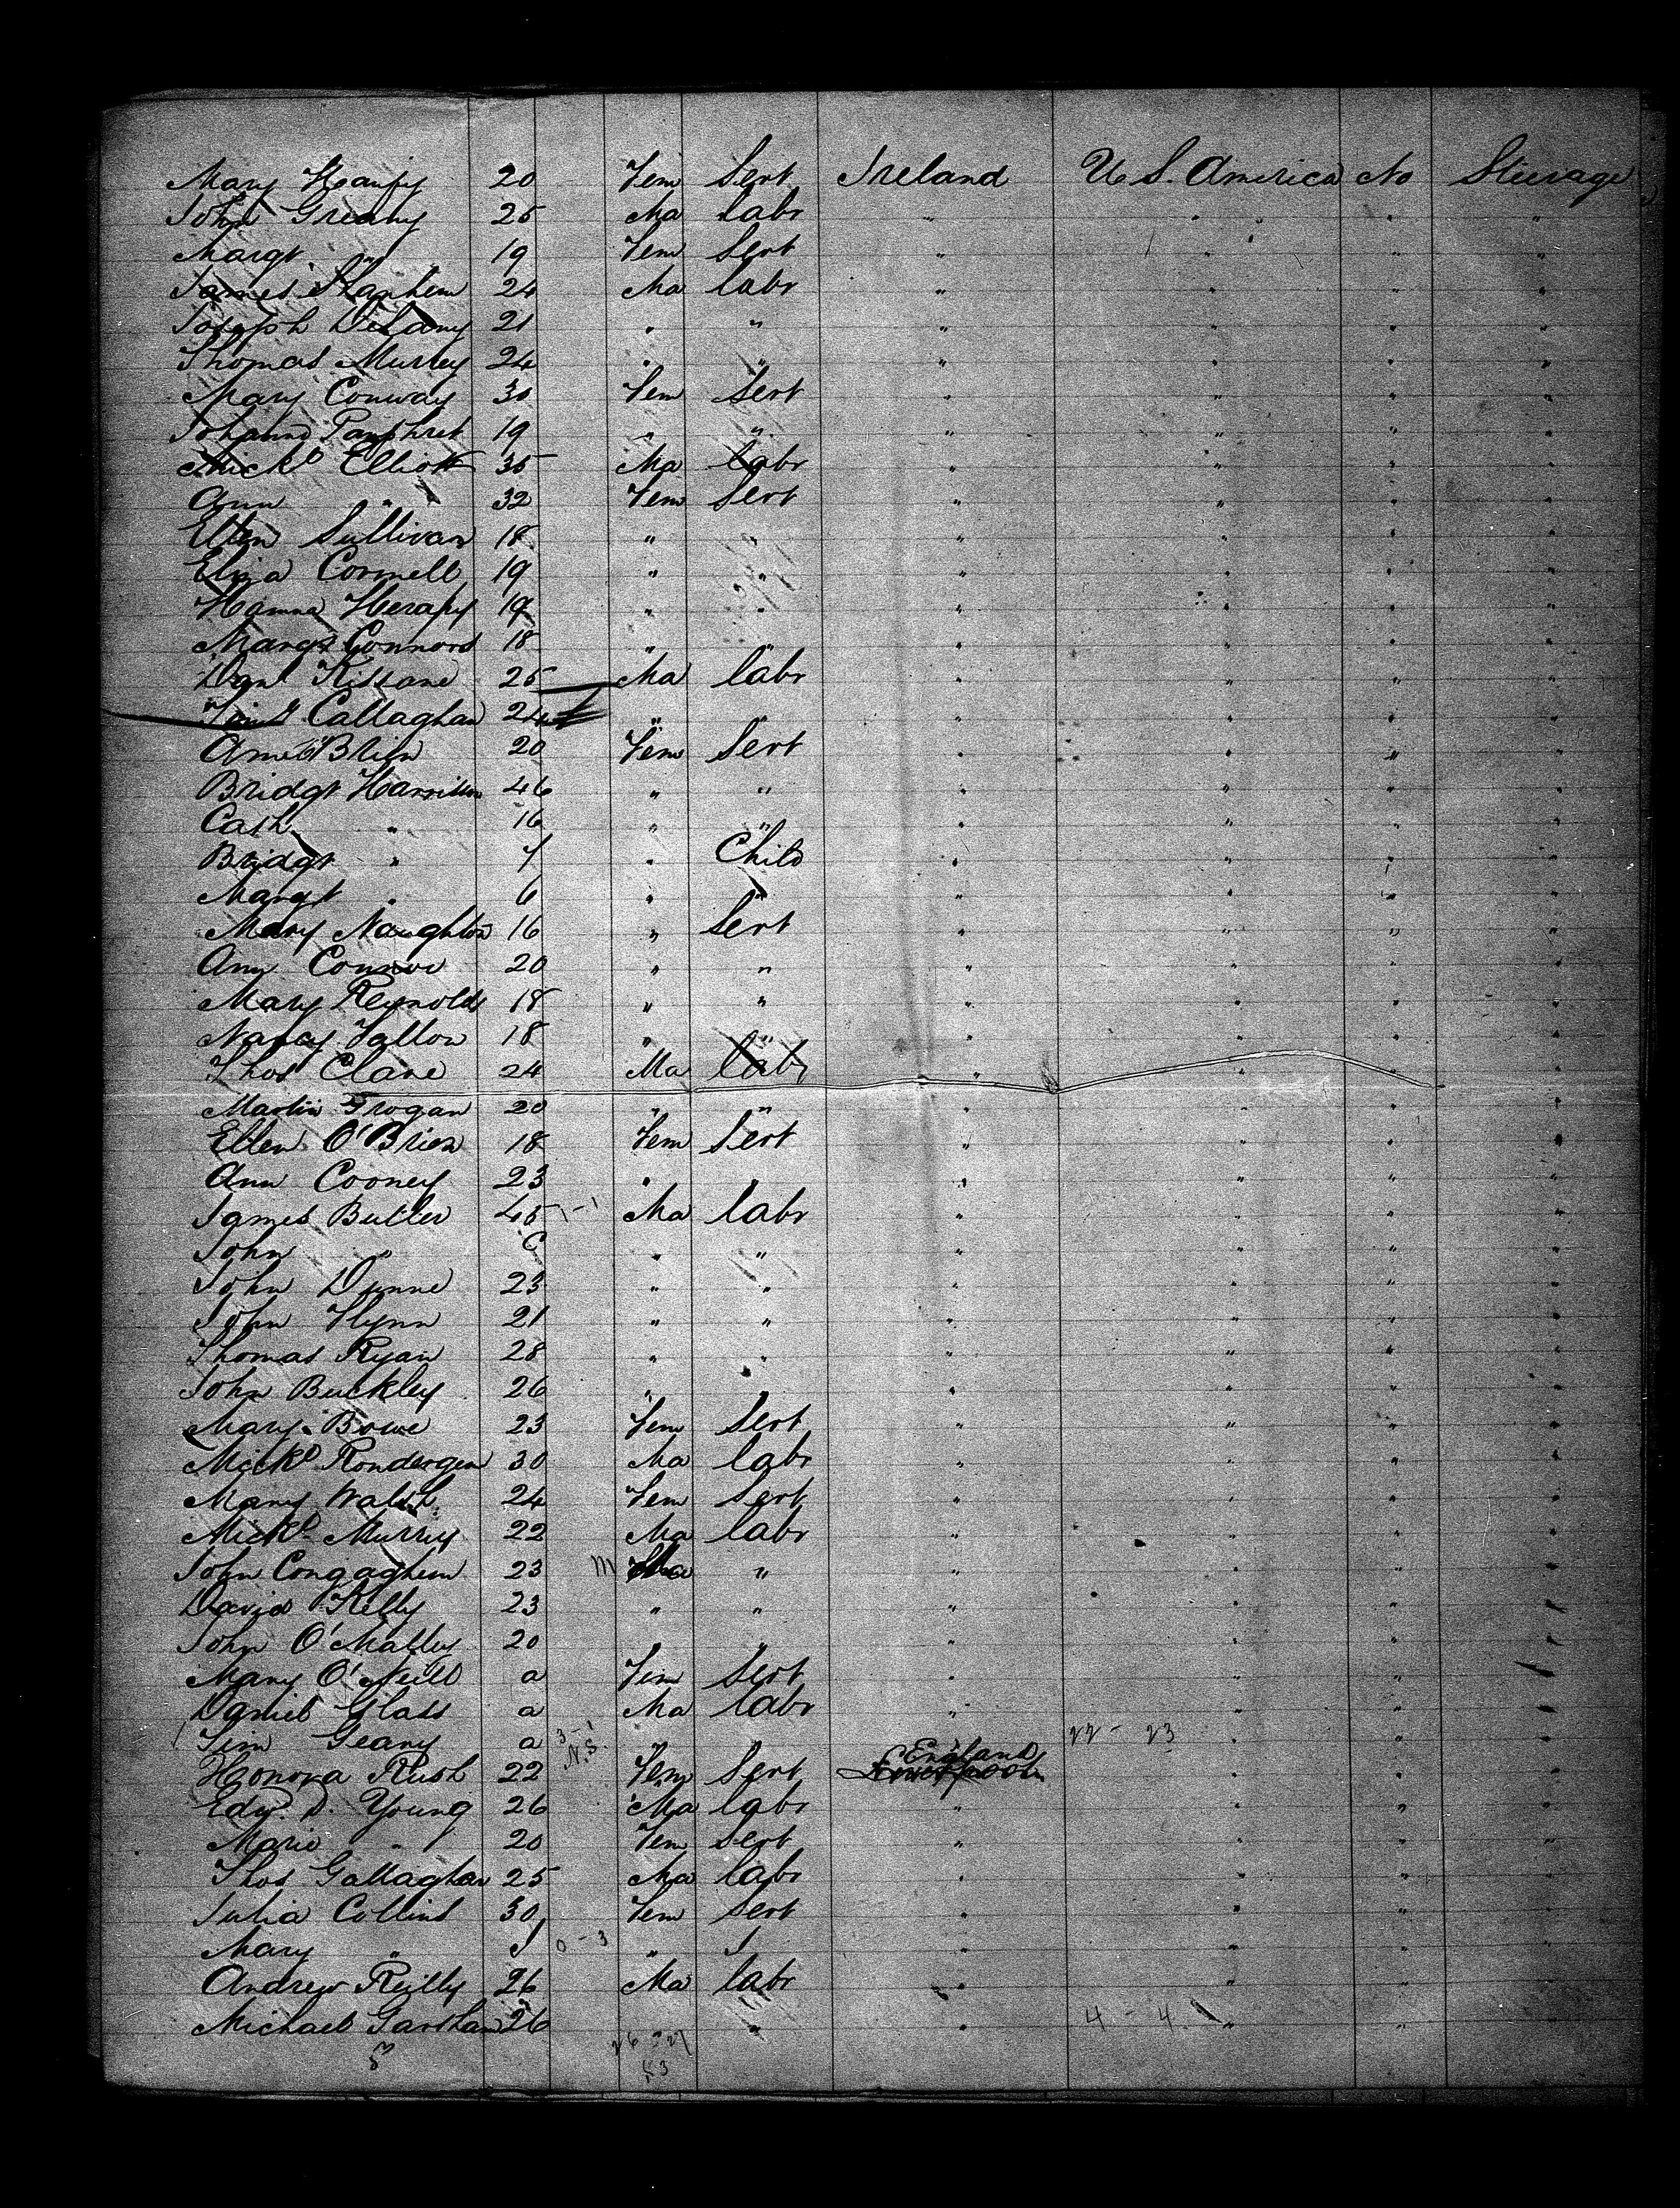 Mary 20 Fem Sert Ireland U. S. America No Steerage
John Greany 25 Ma labr " " " "
Margt " 19 Fem Sert " " " "
James 24 Ma labr " " " "
Joseph Delany 21 " " " " " "
Thomas Murrey 24 " " " " " "
Mary Conway 30 Fem Sert " " " "
Johanna 19 " " " " " "
Mickl Elliott 35 Ma labr " " " "
Ann " 32 Fem Sert " " " "
Ellen Sullivan 18 " " " " " "
Eliza Connell 19 " " " " " "
Hanna 19 " " " " " "
Margt Connors 18 " " " " " "
Danl Kissane 25 Ma labr " " " "
Callaghan 24 " " " " " "
Ann O'Brien 20 Fem Sert " " " "
Bridgt 46 " " " " " "
Cath " 16 " " " " " "
Bridgt " 7 " Child " " " "
Margt " 6 " " " " " "
Mary Naughton 16 " Sert " " " "
Ann Connor 20 " " " " " "
Mary Reynolds 18 " " " " " "
Nancy Fallon 18 " " " " " "
Thos Clane 24 Ma labr " " " "
Martin Grogan 20 " " " " " "
Ellen O'Brien 18 Fem Sert " " " "
Ann Cooney 23 " " " " " "
James Butler 45 1-1 Ma labr " " " "
John " C " " " " " "
John Dunne 23 " " " " " "
John Flynn 21 " " " " " "
Thomas Ryan 28 " " " " " "
John Buckley 26 " " " " " "
Mary Bowe 23 Fem Sert " " " "
Mickl 30 Ma labr " " " "
Mary Walsh 24 Fem Sert " " " "
Mickl Murrey 22 Ma labr " " " "
John 23 M " " " " "
David Kelly 23 " " " " " "
John O'Malley 20 " " " " " "
Mary O'Neill a Fem Sert " " " "
Daniel Glass a Ma labr " " " "
Tim Geary a 3-1 N.S. " " " 22 - 23 " " "
Honora Rush 22 Fem Sert England " " "
Edw D. Young 26 Ma labr " " " "
Marie " 20 Fem Sert " " " "
Thos Gallaghan 25 Ma labr " " " "
Julia Collins 30 Fem Sert " " " "
Mary " I 0-3 " I " " " "
Andrew Reilly 26 Ma labr " " " "
Michael 26 " " " 4 - 4 " " "
26 27
53